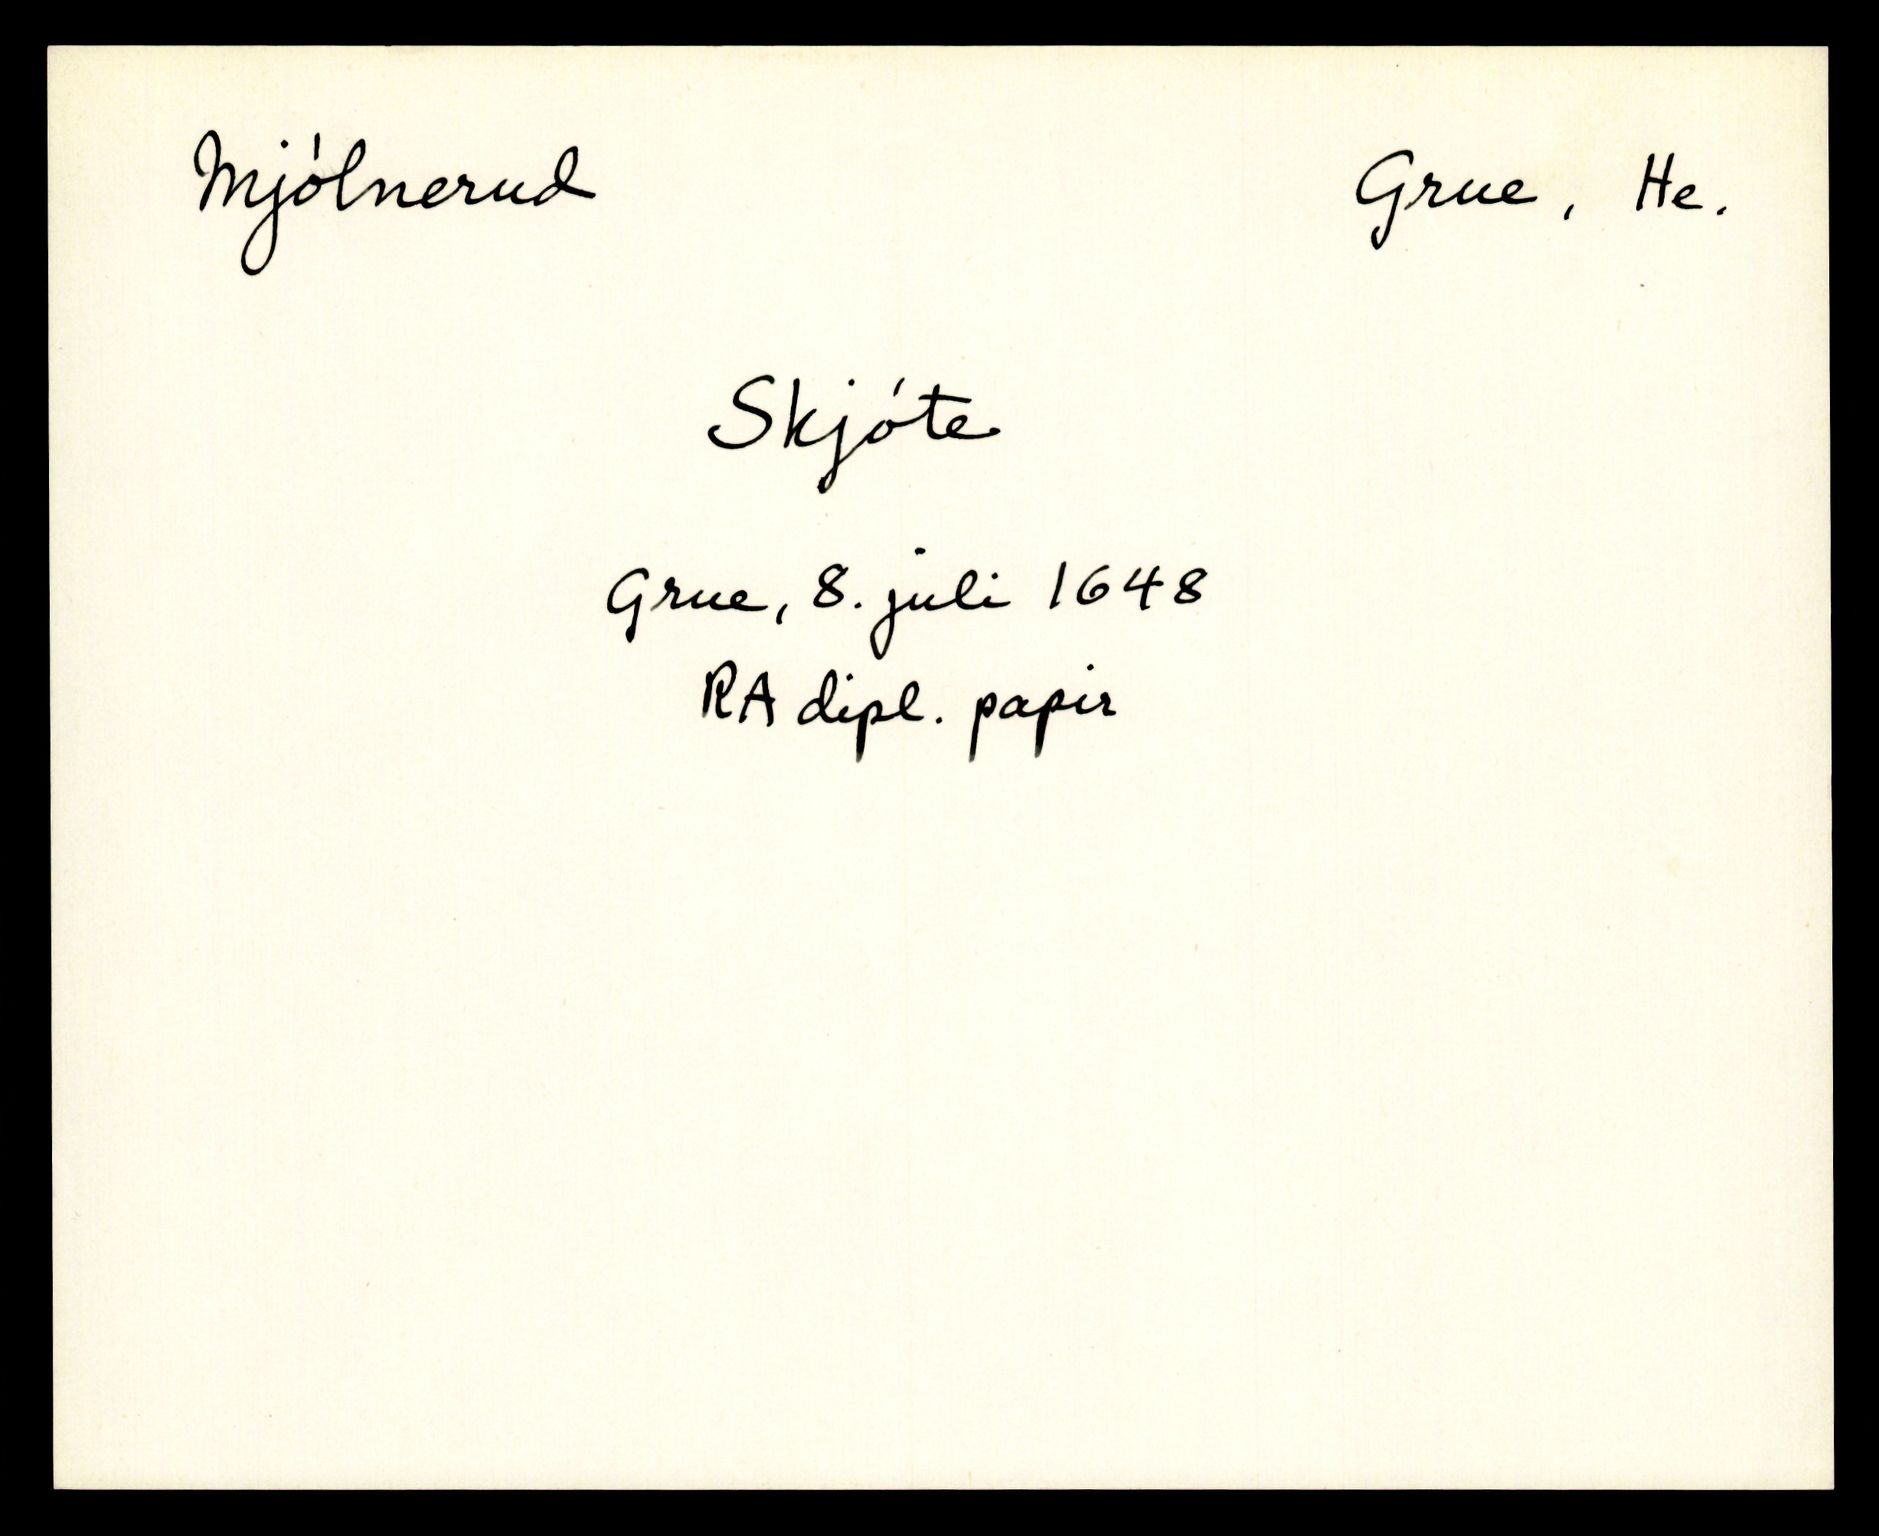 Mjólnerud Grue, He.
Skjóte
Grue, 8. juli 1648
RA dipl. papir